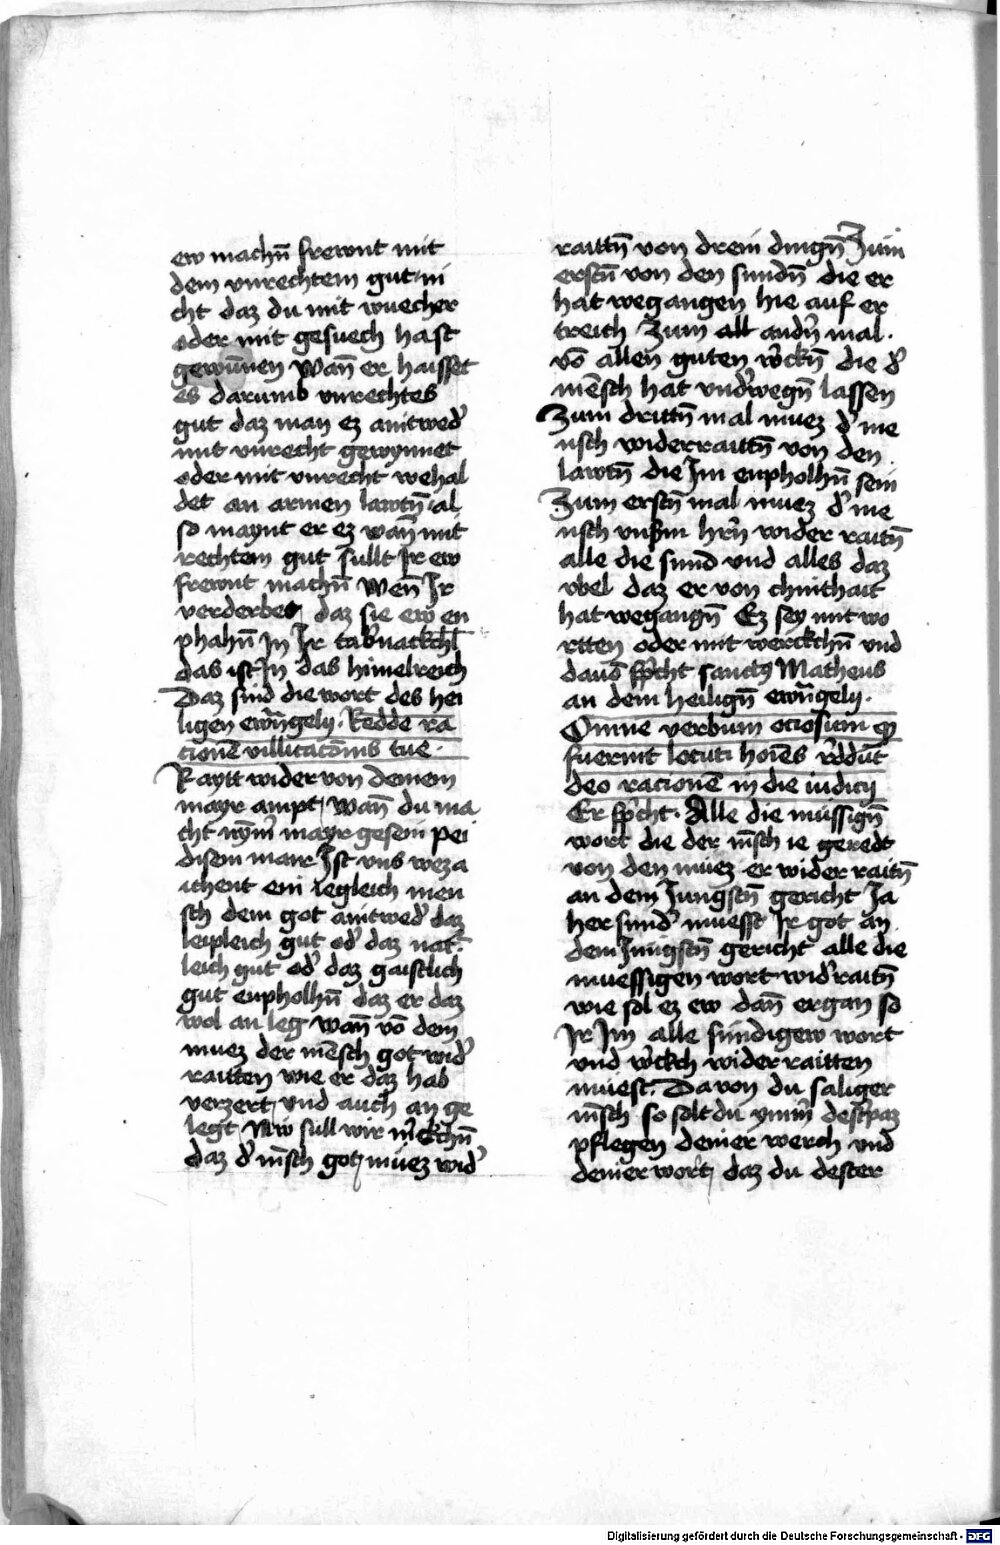 ew machn̄ frewnt mit
dem vnrechtem gut / ni
cht daz du mit wuecher
oder mit gesuech hast
gewun̄en Wan̄ er haisset
es darumb vnrechtes
gut daz man ez aintwed̓
mit vnrecht gewynnet
oder mit vnrecht wehal
det an armen lawtn̄ / al
so maynt er ez wan̄ mit
rechtem gut sullt Ir ew
frewnt machn̄ Wen̄ Ir
verderbet / daz sie ew en
phahn̄ In Ir tab̓nackchl̄
das ist In das himelreich
Daz sind die wort des hei
ligen ewn̄gely · Redde ra
cionē villicacōnis tue ·
Raytt wider von deinem
mayr ampt / Wan̄ du ma
cht nym̄ mayr gesein pei
disem mair Ist vns weza
ichent ein iegleich men
sch dem got aintwed̓ daz
leipleich gut od̓ daz nat̓
leich gut od̓ daz gaistlich
gut enpholhn̄ daz er daz
wol an leg Wan̄ vō dem
muez der mēsch got wid̓
raitten wie er daz hab
verzert / vnd auch an ge
legt Nw sull wir m̓kchn̄
daz d̓ m̄sch got / müez wid̓
raittn̄ von drein dingn̄ Zum
erstn̄ von den sundn̄ die er
hat wegangen hie auf er
treich Zum all andn̓ mal ·
vō allen guten w̓ckn̄ die d̓
mēsch hat vnd̓wegn̄ lassen
Zum drittn̄ mal muez d̓ me
nsch widerraittn̄ von den
lawtn̄ die Im enpholhn̄ sein
Zum erstn̄ mal muez d̓ me
nsch vns̓m hrn̄ wider raitn̄
alle die sund vnd alles daz
vbel daz er von chinthait
hat wegangn̄ Ez sey mit wo
rtten oder mit werckchn̄ vnd
dauō sp̓cht sanctꝯ Matheus
an dem heilign̄ ewn̄gely ·
Omne verbum ociosum qͣ
fuerint locuti hoīes r̓ddūt
deo racionē in die iudicij
Er sp̓cht · Alle die müssign̄
wort die der m̄sch ie geredt
von den müez er wider raitn̄
an dem Jungstn̄ gericht Ja
her sund̓ muesst Ir got an
dem Jungstn̄ gericht alle die
muessigen wort wid̓raitn̄
wie sol ez ew dan̄ ergan so
Ir Im alle sündigew wort
vnd w̓ckch wider raitten
müest. Da von du saliger
m̄sch so solt du ym̄m̄ dest̓paz
pflegen deiner werch vnd
deiner wort / daz du dester
Digitalisierung gefördert durch die Deutsche Forschungsgemeinschaft - DFG